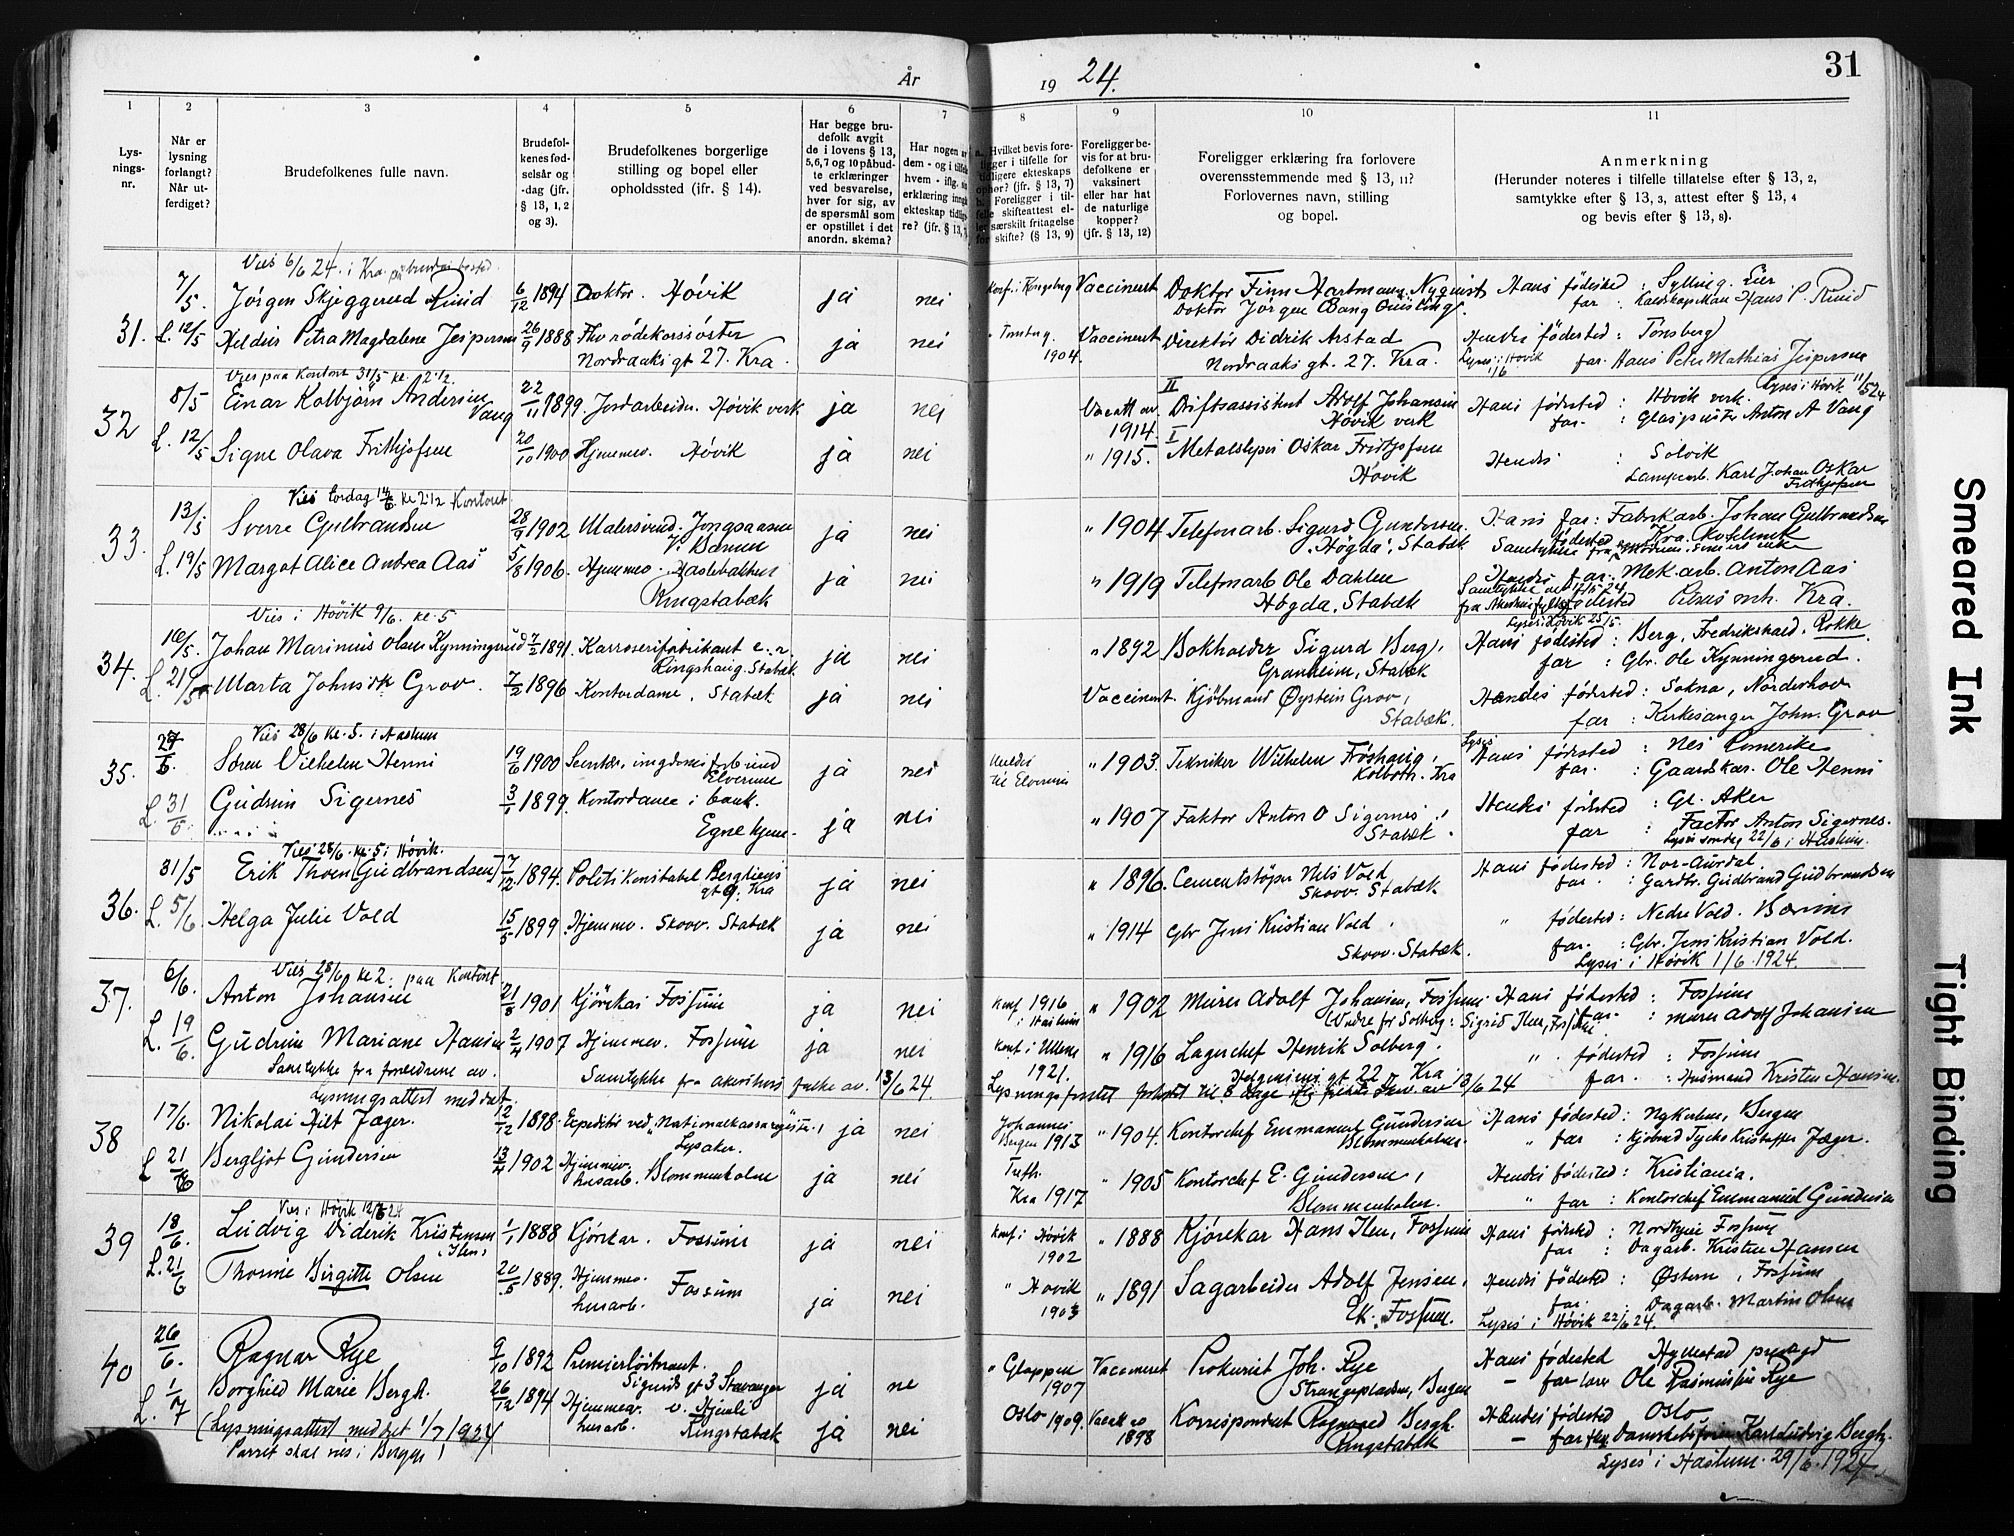 31
År 1924.
1 2 3 4 5 6 7 8 9 10 11
Lys-
nings-
nr.
Når er
lysning
forlangt?
Når ut-
ferdiget?
Brudefolkenes fulle navn.
Brudefol-
kenes fød-
selsår og
-dag (jfr.
§ 13, 1, 2
og 3).
Brudefolkenes borgerlige
stilling og bopel eller
opholdssted (jfr. § 14).
Har begge bru-
defolk avgit
de i lovens § 13,
5, 6, 7 og 10 påbud-
te erklæringer
ved besvarelse,
hver for sig, av
de spørsmål som
er opstillet i det
anordn. skema?
Har nogen av
dem - og i tilfelle
hvem - iflg. sin
erklæring inngått
ekteskap tidlige-
re? (jfr. § 13, 7)
a. Hvilket bevis fore-
ligger i tilfelle for
tidligere ekteskaps
ophør? (jfr. § 13, 7)
b. Foreligger i til-
felle skifteattest el-
ler særskilt fritagelse
for skifte? (§ 13, 9)
Foreligger be-
vis for at bru-
defolkene er
vaksinert
eller har hat
de naturlige
kopper?
(jfr. § 13, 12)
Foreligger erklæring fra forlovere
overensstemmende med § 13, 11?
Forlovernes navn, stilling
og bopel.
Anmerkning
(Herunder noteres i tilfelle tillatelse efter § 13, 2,
samtykke efter § 13, 3, attest efter § 13, 4
og bevis efter § 13, 8).
Vies 6/6 24. i Kra.
7/5. Jörgen Skjeggerud Ruud 6/12 1894 Doktor. Hövik ja nei Vaccinert Doktor Finn Hartmann Nyquist Hans födested : Sylling. Lier
Doktor Jörgen Bang far : Hans P. Ruud
31. L. 12/5 Petra Magdalene Jespersen 26/9 1888 Frk rödekorssöster ja nei 1904. Vaccinert Direktör Didrik Arstad Hendes födested : Tönsberg
Nordraaks gt 27. Kra. Nordraaks gt. 27. Kra. Lyses i Hövik 1/6 far. Hans Peter Mathias Jespersen
Vies paa Kontoret 31/5 kl. 2 1/2.
32 8/5 Einar Kolbjörn Andersen Vang 22/11 1899. Jordarbeider. Hövik verk ja nei 1914. II Driftsassistent Adolf Johansen Hövik verk Hans födested : Hövik verk. Lyses i Hövik 11/5 24
far. : Glaspuster Anton A Vang
L. 12/5 Signe Olava Frithjofsen 20/10 1900 Hjemmev. Hövik ja nei " 1915. I Metalsliper Oskar Frithjofsen Hövik Hendes : Solvik
Karl Johan Oskar Frithjofsen
Vies lördag 14/6 kl 2 1/2 Kontoret
33. 13/5 Sverre Gulbrandsen 28/9 1902 Malersvend. Jongsaasen V. Bærum ja nei " 1904 Telefonarb. Sigurd Gundersen. "Högda", Stabæk Hans far: Fabrikarb. Johan Gulbrandsen
L. 19/5 Margot Alice Andrea Aas 5/8 1906. Hjemmev. Haslebakken Ringstabæk ja nei " 1919 Telefonarb Ole Dahlen Högda, Stabæk Hendes far: Mek. arb. Anton Aas
födested Kra.
Vies i Hövik 9/6. kl. 5 Lyses i Hövik 25/5.
34. 16/5. Johan Marinius Olsen Kynningsrud 7/2 1891. Karosserifabrikant Ringshaug. Stabæk ja nei " 1892 Bokholder Sigurd Berg, Granheim, Stabæk Hans födested : Berg, Fredrikshald. Rokke
far : Gbr. Ole Kynningsrud.
L. 21/5 Marta Johnsdr Grov. 7/2 1896 Kontordame, Stabæk ja nei Vaccinert. Kjöbmand Öystein Grov, Stabæk. Hendes födested: Sokna, Norderhov
far : Kirkesanger John Grov
Vies 28/6 kl. 5. i Haslum
35. 27/5. Sören Vilhelm Henni 19/6 1900 Elverum ja nei til Elverum " 1903. Tekniker Wilhelm Fröshaug, Kolbotn. Kra Hans födested : Nes Romerike
far. : Gaardskar. Ole Henni
L. 31/5. Gudrun Sigernes 3/1 1899. Kontordame i bank. Egne hjem. ja nei " 1907 Faktor Anton O Sigernes, Stabæk. Hendes födested : Gl. Aker
far : Factor Anton Sigernes.
Lyses söndag 22/6 i Haslum.
Vies 28/6. kl. 5 i Hövik.
36. 31/5 Erik Thoen (Gudbrandsen) 7/12 1894. Politikonstabel gt 9. Kra ja nei " 1896. Cementstöper Nils Vold Skovv. Stabæk Hans födested : Nor-Aurdal.
far. : Gardbr. Gudbrand Gudbrandsen
L. 5/6. Helga Julie Vold 15/5 1899. Hjemmev. Skovv. Stabæk ja nei " 1914 Gbr Jens Kristian Vold. Skovv. Stabæk. " födested: Nedre Vold. Bærum
far. : Gbr. Jens Kristian Vold.
Lyses i Hövik 1/6. 1924.
Vies 28/6 kl 2. paa Kontoret
37. 6/6. Anton Johansen 21/5 1901 Kjörekar Fossum ja nei Konf 1916 i Haslum " 1902 Murer Adolf Johansen, Fossum Hans födested : Fossum
far. : murer Adolf Johansen
L. 19/6. Gudrun Mariane Hansen 2/4 1907 Hjemmev. Fossum ja nei Konf i Ullern 1921. " 1916 Lagerchef Henrik Solberg. gt 22. Kra " födested : Fossum
Samtykke fra forældrene av. Samtykke fra Akershus fylke av. 13/6 24. far. : Husmand Kristen Hansen.
Lysningsattest meddelt.
38 17/6. Nikolai Alet Jæger. 12/12 1898. Expeditör ved "Nationalkassaregister", Lysaker. ja nei Johannes Bergen 1913 " 1904. Kontorchef Emmanuel Gundersen Blommenholm. Hans födested: Nykirken, Bergen
" far : Kjöbmd Tycho Kristoffer Jæger.
L 21/6 Bergljot Gundersen 13/4 1902 Hjemmev. husarb. Blommenholm ja nei Kra 1917 " 1905 Kontorchef E. Gundersen, Blommenholm. Hendes födested: Kristiania.
" far : Kontorchef Emmanuel Gundersen
Vies i Hövik 12/7 24
39 18/6. Ludvig Diderik Kristensen (Ilen) 1/1 1888 Kjörekar. Fossum ja nei Konf i Hövik 1902 " 1888 Kjörekar Hans Ilen, Fossum Hans födested : Nordbyen Fossum
far : Dagarb. Kristen Hansen
L. 21/6 Thorine Birgitte Olsen 20/5 1889. Hjemmev. husarb. Fossum ja nei " Hövik 1903 " 1891 Sagarbeider Adolf Jensen, Ek. Fossum. Hendes födested : Östern, Fossum
far. : Dagarb. Martin Olsen
Lyses i Hövik 22/6 24.
40 26/6. Ragnar Rye 9/10 1892 Premierlöitnant. Sigurds gt 3 Stavanger ja ne " Gloppen 1907 Vaccineret Prokurist Joh. Rye Strangepladsen, Bergen Hans födested Hyllestad prestegd
- far Ole Rasmussen Rye
L. 1/7 Borghild Marie Bergh. 26/12 1894 Hjemmev. husarb. Ringstabæk ja nei Oslo 1909. 1898 Korrespondent Ragnvald Bergh. Ringstabæk Hendes födested Oslo
(Lysningsattest meddelt 1/7 1924 - far Karl Ludvig Bergh.
Parret skal vies i Bergen! Lyses i Haslum. 29/6. 1924.
Smeared Ink
Tight Binding